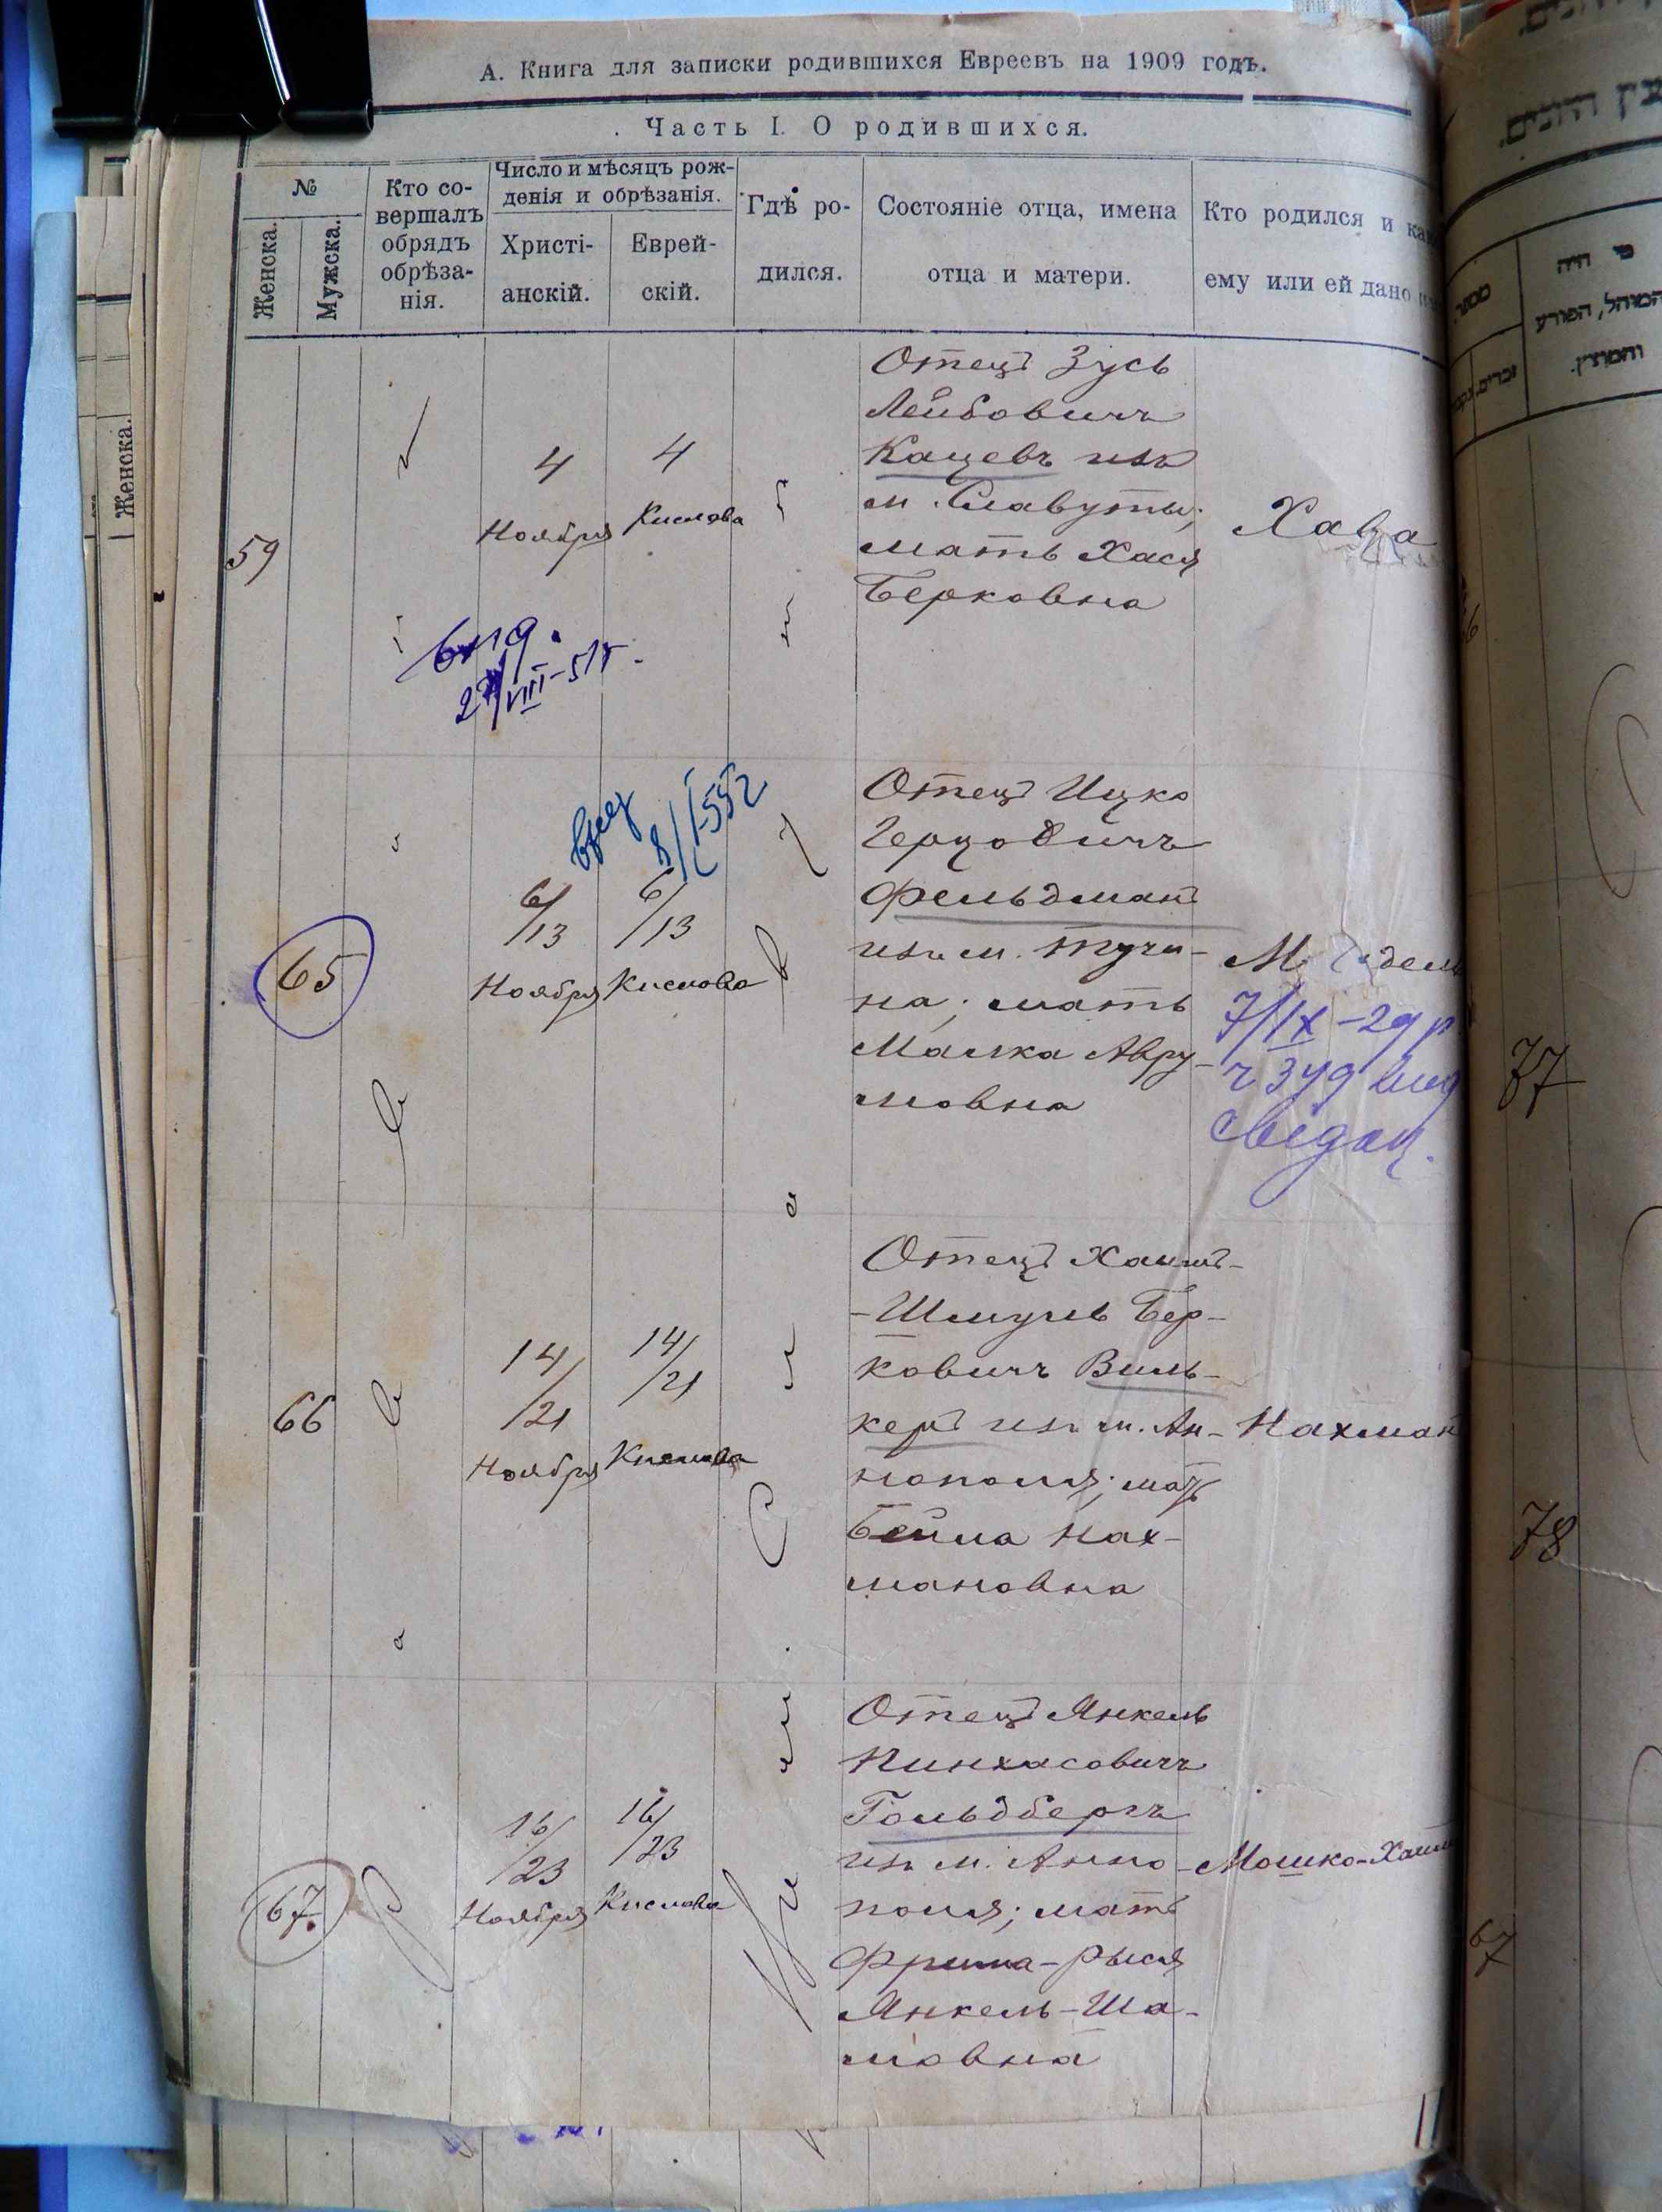 А. Книга для записки родившихся Евреевъ на 1909 годъ.
Часть I. О родившихся.
№
Женска.
Мужска.
Кто со-
вершалъ
обрядъ
обрѣза-
нія.
Число и мѣсяцъ рож-
денія и обрѣзанія.
Христі-
анскій.
Еврей-
скій.
Гдѣ ро-
дился.
Состояніе отца, имена
отца и матери.
Кто родился и
ему или ей дано
59
4
Ноября
4
Кислова
Отецъ Зусь
Лейбовичъ
Кацевъ изъ
м. Славуты;
мать Хася
Берковна
Хава
65
6/13
Ноября
6/13
Кислова
Отецъ Ицко
Герцовичъ
Фельдманъ
изъ м. Тучи-
на; мать
Малка Авру-
мовна
7/IX-29 р
свідоц.
66
14/21
Ноября
14/21
Кислова
Отецъ Хаимъ-
-Шмуль Бер-
ковичъ Виль-
керъ изъ м. Ан-
нополя; мать
Бейла Нах-
мановна
Нахман
67
16/23
Ноября
16/23
Кислова
Отецъ Янкель
Пинхасовичъ
Гольдбергъ
изъ м. Анно-
поля; мать
Фрима-Рыся
Янкель-Ша-
мовна
Мошко-Хаим
Женска.
מי היה
המוהל, הפורע
והמוצץ.
זכרים.
77
78
67